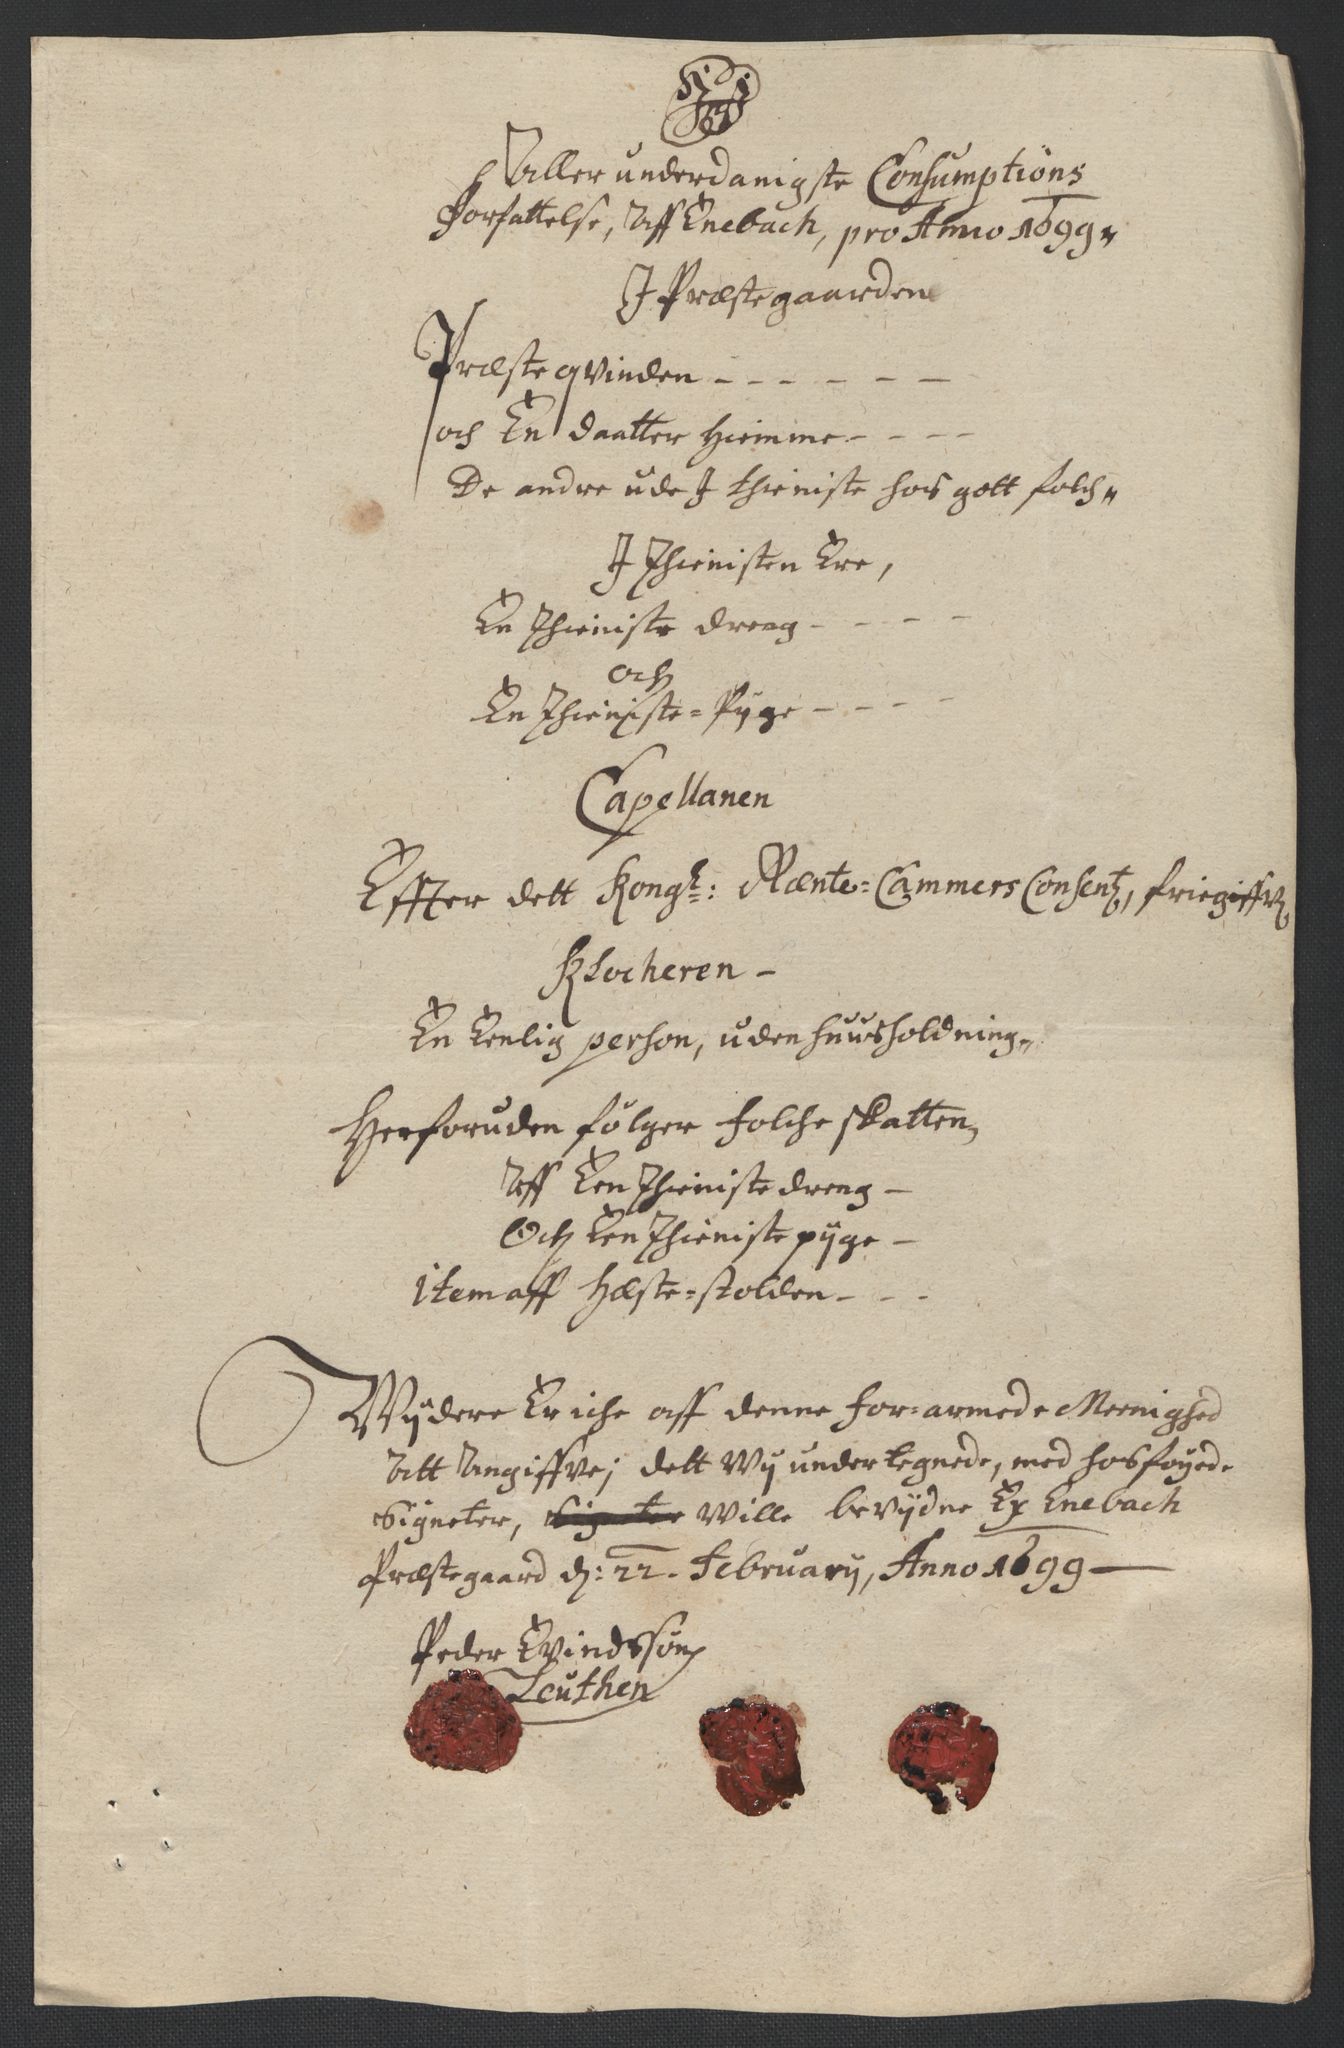 Aller underdanigste Consumptions
Forfattelse, Aff Enebach, pro Anno 1699„
J Præstegaarden
Præsteqvinden - - - - - -
och En daatter hiemme - - - -
De andre ude J thieniste hos gott folch„
J Thienisten Ere,
En Thieniste dreng - - - -
och
En Thieniste=Pyge - - - -
Capellanen
Effter dett Kongl: Rænte=Cammers Consentz, friegiffven
Klocheren -
En Eenlig person, uden huusholdning„
Herforuden følger Folche skatten,
Aff Een Thieniste dreng -
Och Een Thieniste pyge -
item aff Hæste=skolden - - -
Wydere Er iche aff denne for=armede Meenighed
Att Angiffve; dett Wy undertegnede, med hosføyede
Signeter, Signeter Wille bevydne Ex Enebach
Præstegaard d: 22. February, Anno 1699
Peder Evindssøn
Leuthen